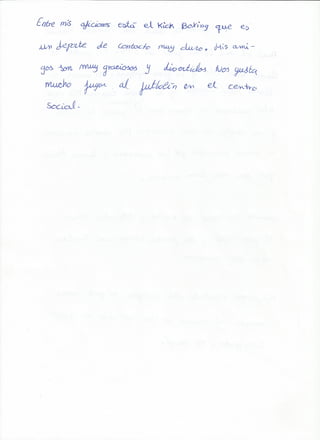 Entre mis aficiones está el Kick Boxing que es
un deporte de contacto muy duro. Mis ami-
gos son muy graciosos y divertidos Nos gusta
mucho jugar al futbolín en el centro
Social.